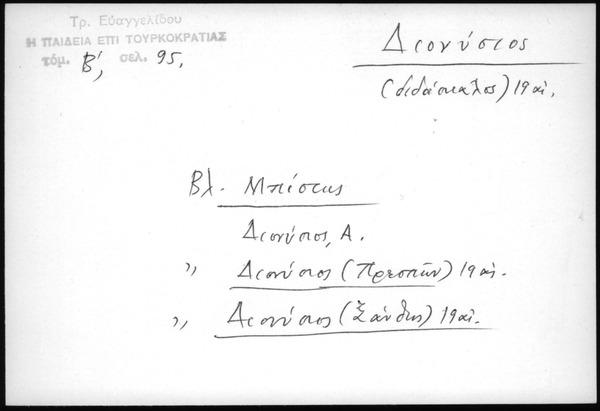 Τρ. Εὐαγγελίδου
Η ΠΑΙΔΕΙΑ ΕΠΙ ΤΟΥΡΚΟΚΡΑΤΙΑΣ
τόμ. Β', σελ. 95,
Διονύσιος
(διδάσκαλος) 19 αἰ.
Βλ. Μπέστης
Διονύσιος, Α.
,, Διονύσιος (Πρεσπῶν) 19 αἰ.
,, Διονύσιος (Ξάνθης) 19 αἰ.